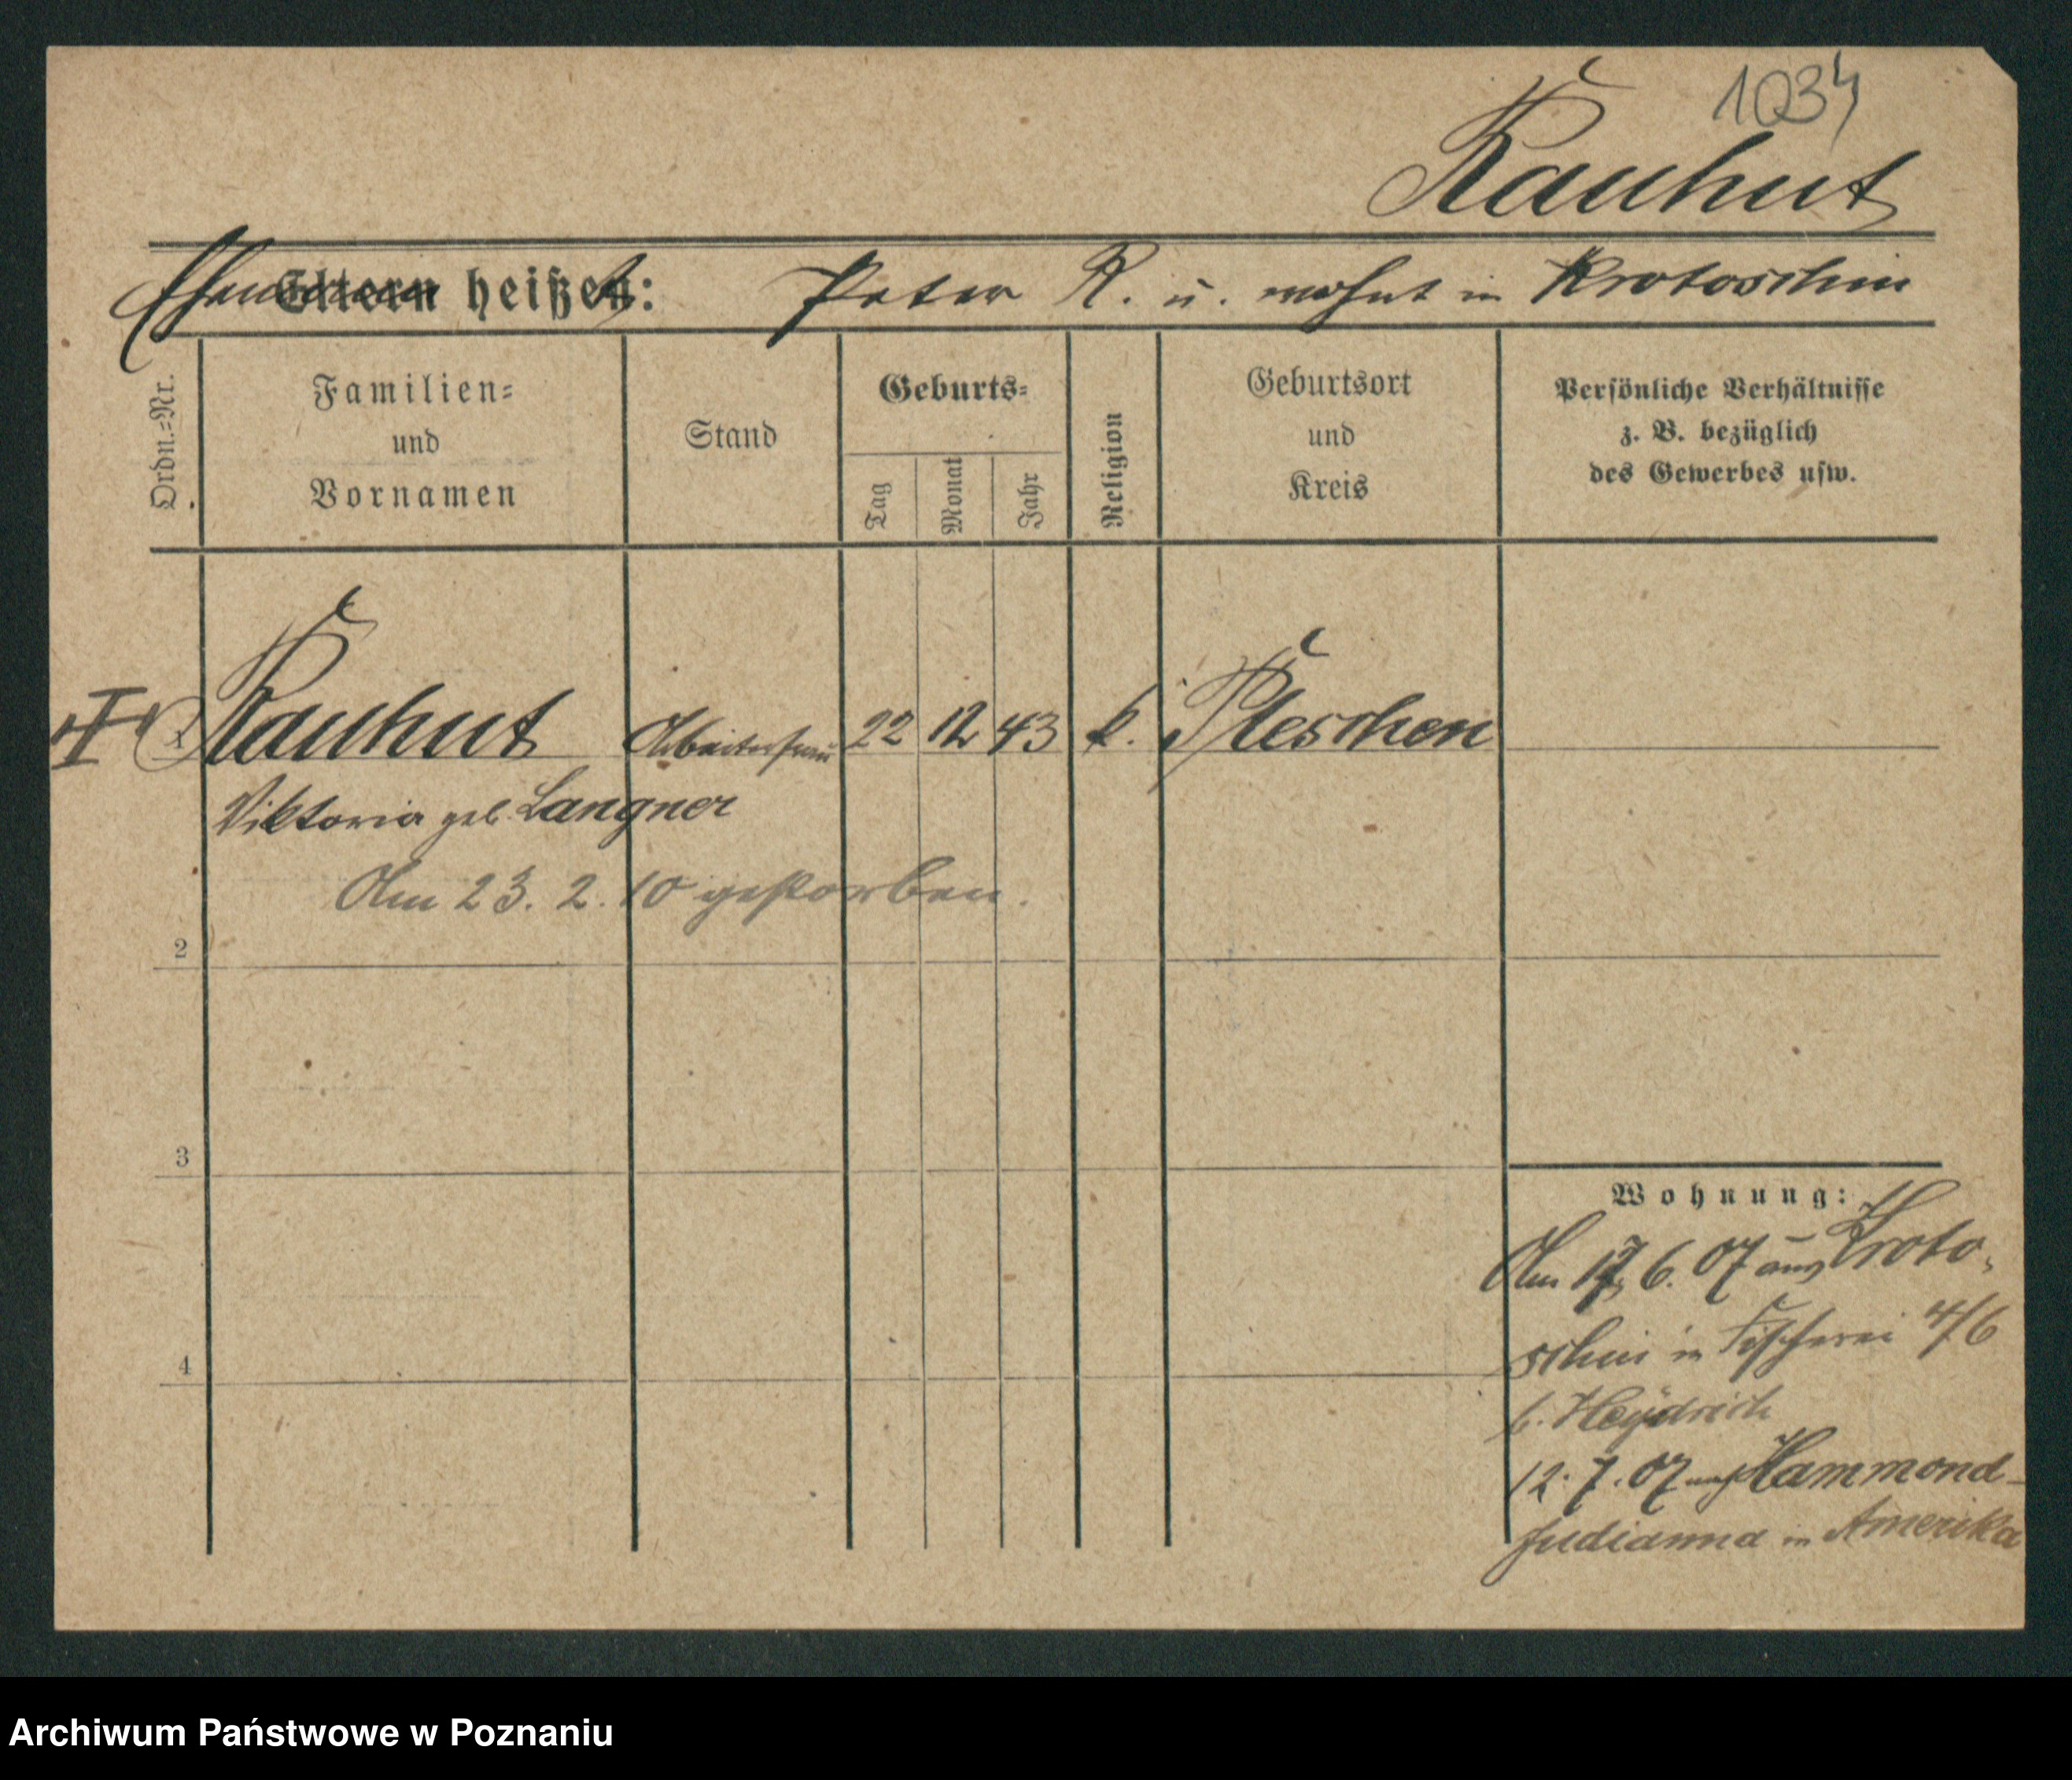 1034
Rauhut
Ehemann heißt: Peter R. u. wohnt in Krotoschin
Ordn.=Nr.
Familien=
und
Vornamen
Stand
Geburts=
Tag
Monat
Jahr
Religion
Geburtsort
und
Kreis
Persönliche Verhältnisse
z. B. bezüglich
des Gewerbes usw.
1 Rauhut Arbeiterfrau 22 12 43 k. Pleschen
Viktoria geb. Langner
Am 23. 2. 10 gestorben.
2
3
4
Wohnung:
Am 17. 6. 07 aus Kroto-
schin in Fischerei 4/6
b. Heydrich
12. 7. 07 nach Hammond-
Indianna in Amerika
Archiwum Państwowe w Poznaniu